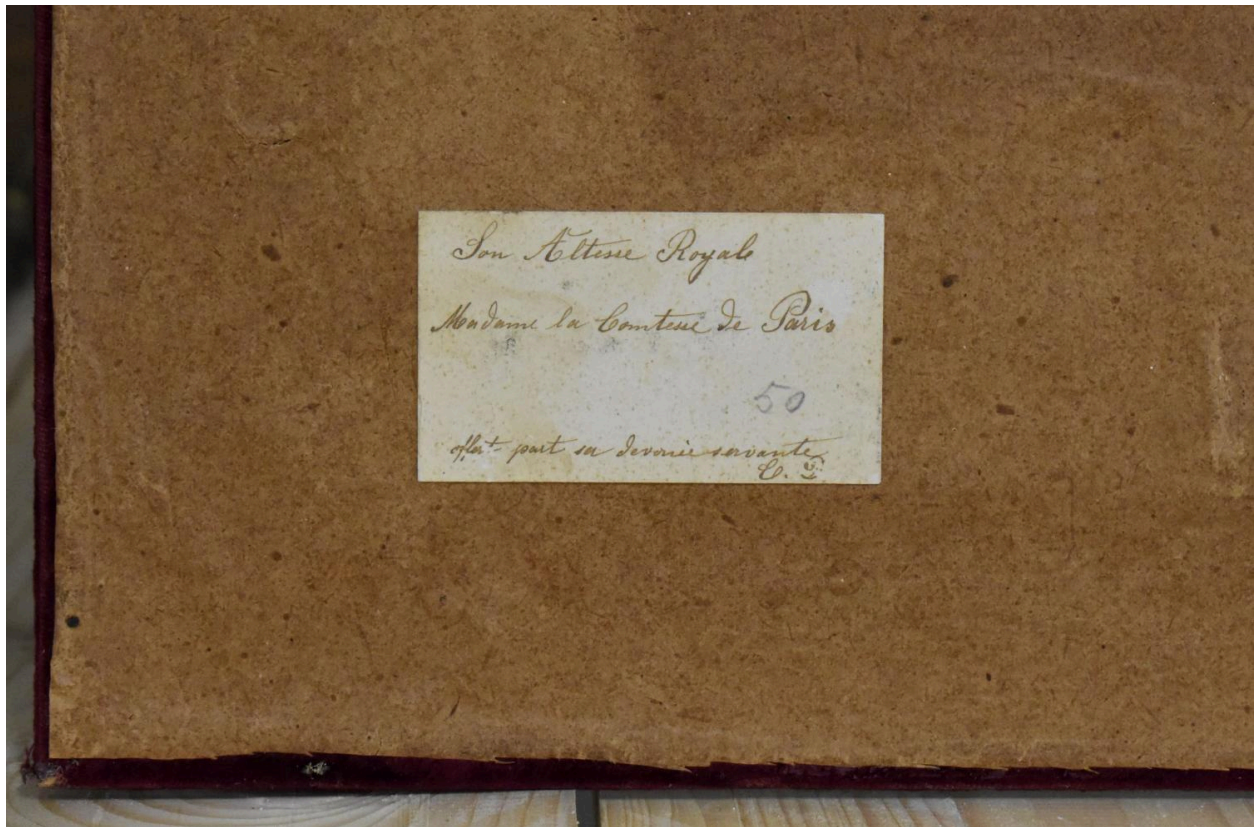 Son Altesse Royale
Madame la Comtesse de Paris
50
offert part sa devouée servante
C.